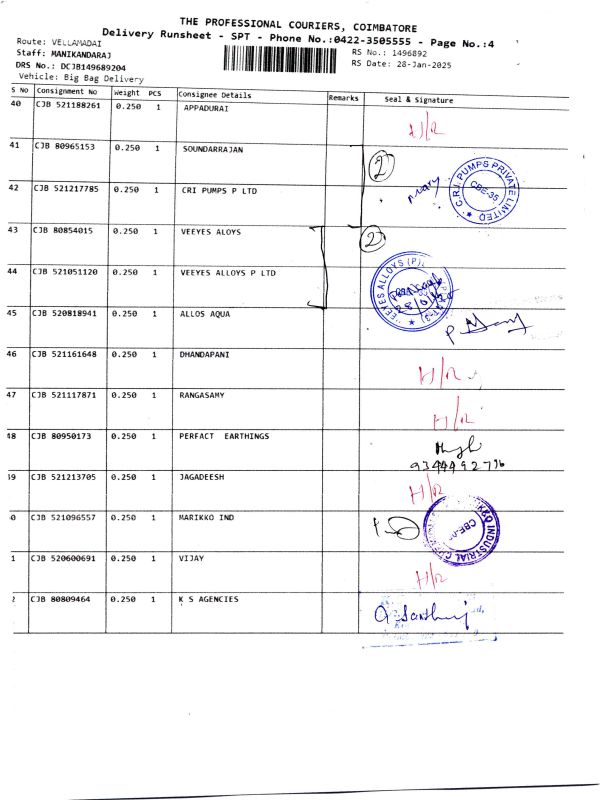 THE PROFESSIONAL COURIERS, COIMBATORE
Delivery Runsheet - SPT - Phone No.:0422-3505555 - Page No.:4
Route: VELLAMADAI
RS No.: 1496892
Staff: MANIKANDARAJ
RS Date: 28-Jan-2025
DRS No.: DCJB149689204
Vehicle: Big Bag Delivery
S No Consignment No Weight PCS Consignee Details Remarks Seal & Signature
40 CJB 521188261 0.250 1 APPADURAI H/R
41 CJB 80965153 0.250 1 SOUNDARRAJAN 2
42 CJB 521217785 0.250 1 CRI PUMPS P LTD
C.R.I. PUMPS PRIVATE LIMITED
CBE-35
43 CJB 80854015 0.250 1 VEEYES ALOYS 2
44 CJB 521051120 0.250 1 VEEYES ALLOYS P LTD
45 CJB 520818941 0.250 1 ALLOS AQUA
46 CJB 521161648 0.250 1 DHANDAPANI H/R
47 CJB 521117871 0.250 1 RANGASAMY H/R
48 CJB 80950173 0.250 1 PERFACT EARTHINGS
9344492796
49 CJB 521213705 0.250 1 JAGADEESH H/R
0 CJB 521096557 0.250 1 MARIKKO IND
1 CJB 520600691 0.250 1 VIJAY H/R
2 CJB 80809464 0.250 1 K S AGENCIES